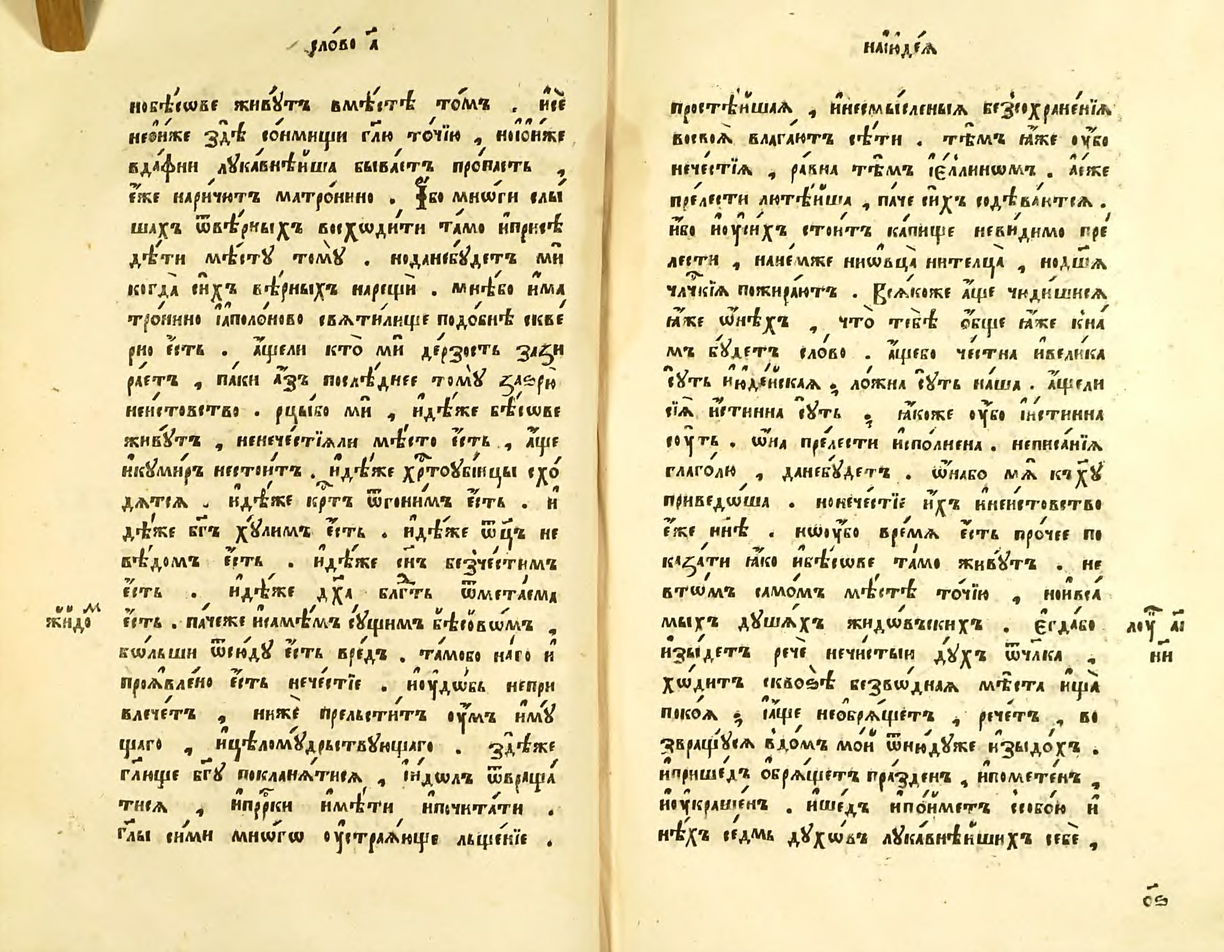 сло́во а҃
нобѣ́сѡве живꙋ́тъ вмѣ́стѣ то́мъ . и҆сѐ
нео҆́ни́же здѣ̀ со́нмищи гл҃ю то́чїю , нои҆о҆́ни́же
вда́фни лꙋка́внѣиша быва́етъ про́пасть ,
є҆́же нари́чит матро́нино . И҆́бо мно́ги слы́
шахъ ѿвѣ́рныхъ восхѡди́ти та́мо и҆присѣ
дѣ́ти мѣ́стꙋ томꙋ̀ . нодане́бꙋ́детъ мѝ
когда̀ си́хъ вѣ́рныхъ нарещѝ . мнѣ́бо и҆ма
тро́нино і҆аполо́ново свѧти́лище подо́бнѣ скве́
рно є҆́сть . а҆́щели кто̀ мѝ де́рзость зази
ра́етъ , па́ки а҆́зъ послѣ́днее томꙋ̀ заѕрю̀
неи́стовство . рцы́бо мѝ , и҆дѣ́же бѣ́сѡве
живꙋ́тъ , ненече́стїѧли мѣ́сто є҆́сть , а҆́ще
и҆кꙋми́ръ нестои́тъ . и҆дѣ́же хрⷭ҇тоубі́ицы схо́
дѧтсѧ . и҆дѣ́же крⷭ҇тъ ѿгони́мъ є҆́сть . и҆
дѣ́же бг҃ъ хꙋ́лимъ є҆́сть . и҆дѣ́же ѿц҃ъ не
вѣ́домъ є҆́сть . и҆дѣ́же сн҃ъ безче́стимъ
є҆́сть . и҆дѣ́же дх҃а блгⷣть ѿмета́ема
є҆́сть . па́чеже и҆самѣ́мъ сꙋ́щимъ бѣ́сѡвѡмъ ,
жидо́м
бѡ́льши ѿсю́дꙋ є҆́сть вре́дъ . та́мобо на́го и҆
проѧ́влено є҆́сть нече́стїе . и҆оу҆дѡ́бь непри
влече́тъ , нижѐ прельсти́тъ оу҆́мъ и҆мꙋ́
щаго , и҆цѣломꙋ́дрьствꙋющаго . здѣ́же
гл҃юще бг҃ꙋ поклана́тисѧ , і҆́идѡлъ ѿвраща́
тисѧ , и҆прⷪ҇ро́ки и҆мѣ́ти и҆почита́ти .
гл҃ы си́ми мно́гѡ оу҆страѧ́юще льще́нїе .
наїюде́ѧ
простѣ́йшаѧ , и҆несмы́сленыѧ безсохране́нїѧ
восвоѧ̀ влага́ютъ сѣ́ти . тѣ́мъ ꙗ҆́же оу҆́бо
нече́стїѧ , ра́вна тѣ́мъ і҆є҆́ллинѡмъ . а҆є҆́же
пре́лести лютѣ́йша , па́че си́хъ содѣва́ютсѧ .
и҆́бо и҆оу҆си́хъ стои́тъ ка́пище неви́димо пре́
лести , нане́мже ниѡвца̀ нителца̀ , нодш҃ѧ
чл҃чкїѧ пожира́ютъ . Всѧ́коже а҆́ще чꙋ́дишисѧ
ꙗ҆́же ѿни́хъ , что̀ тебѣ̀ о҆́бще ꙗ҆́же кна́
мъ бꙋ́детъ сло́во . а҆́щебо че́стна и҆вели́ка
сꙋ́ть и҆юде́йскаѧ ; ло́жна сꙋ́ть на́ша . а҆́щели
сїѧ̀ и҆́стинна сꙋ́ть ; ꙗ҆́коже оу҆́бо і҆и́стинна
соу́ть . ѡ҆́на пре́лести и҆спо́лнена . неписа́нїѧ
глаго́лю , дане́бꙋ́детъ . ѡ҆на́бо мѧ̀ кхⷭ҇ꙋ̀
приведѡ́ша . нонече́стїе и҆́хъ и҆неи́стовство
є҆́же нн҃ѣ . ноу҆́бо вре́мѧ є҆́сть про́чее по
каза́ти ꙗ҆́ко и҆бѣ́сѡве та́мо живꙋ́тъ . не
вто́мъ са́момъ мѣ́стѣ то́чїю , нои҆вса́
мыхъ дꙋша́хъ жидѡ́въскихъ . є҆гда́бо
лоу҆ⷦ҇ аі҃
нн
и҆зы́детъ речѐ нечи́стыи дꙋ́хъ ѿчл҃ка ,
хѡ́дитъ сквоѕѣ̀ безвѡ́днаѧ мѣ́ста и҆щѧ̀
поко́ѧ ; і҆а҆́ще необрѧ́щетъ , рече́тъ , во
звращꙋ́сѧ вдо́мъ мо́й ѿню́дꙋже и҆зыдо́хъ .
и҆прише́дъ о҆брѧ́щетъ пра́зденъ , и҆помете́нъ ,
и҆оу҆кра́шенъ . и҆ше́дъ и҆по́йметъ ссобо́ю и҆
нѣ́хъ се́дмь дꙋхѡ́въ лꙋка́внѣйшихъ себѐ ,
ѻ҃ѕ